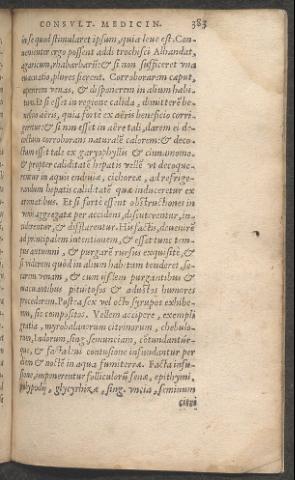 CONSVLT. MEDICIN. 383
in se quod stimularet ipsum, quia leue est. Con-
uenienter ergo possent addi trochisci Alhandat,
agaricum, rhabarbarũ: & si non sufficeret vna
euacuatio, plures fierent. Corroborarem caput,
aperirem venas, & disponerem in alium habi-
tum. Et si esset in regione calida, dimitterẽ be-
neficio aëris, quia forte ex aëris beneficio corri-
geretur: & si non esset in aëre tali, darem ei de-
coctum corroborans naturalẽ calorem: & deco-
ctum esset tale ex garyophyllis & cinnamomo.
& propter caliditatẽ hepatis vellẽ vt decoque-
rentur in aquis endiuiæ, cichoreæ, ad refrige-
randum hepatis caliditatẽ quæ induceretur ex
aromatibus. Et si forte essent obstructiones in
non aggregatæ per accidens, discuterentur, in-
ciderentur, & dissiparentur. His factis, deuenirẽ
ad principalem intentionem, & esset tunc tem-
pus autumni, & purgarẽ rursus exquisitè, &
si viderem quòd in alium habitum tenderet, se-
carem venam, & cum eisdem purgantibus &
euacuantibus pituitosos & adustos humores
procederem. Postea sex vel octo syrupos exhibe-
rem, sic compositos. Vellem accipere, exempli
gratia, myrobalanorum citrinorum, chebulo-
rum, Indorum, sing. semunciam, cõtundantur-
que, & facta hac contusione infundantur per
diem & noctẽ in aqua fumiterræ. Facta infu-
sione, imponerentur folliculorũ senæ, epithymi,
polypodij, glycyrhizæ, sing. vncia, seminum